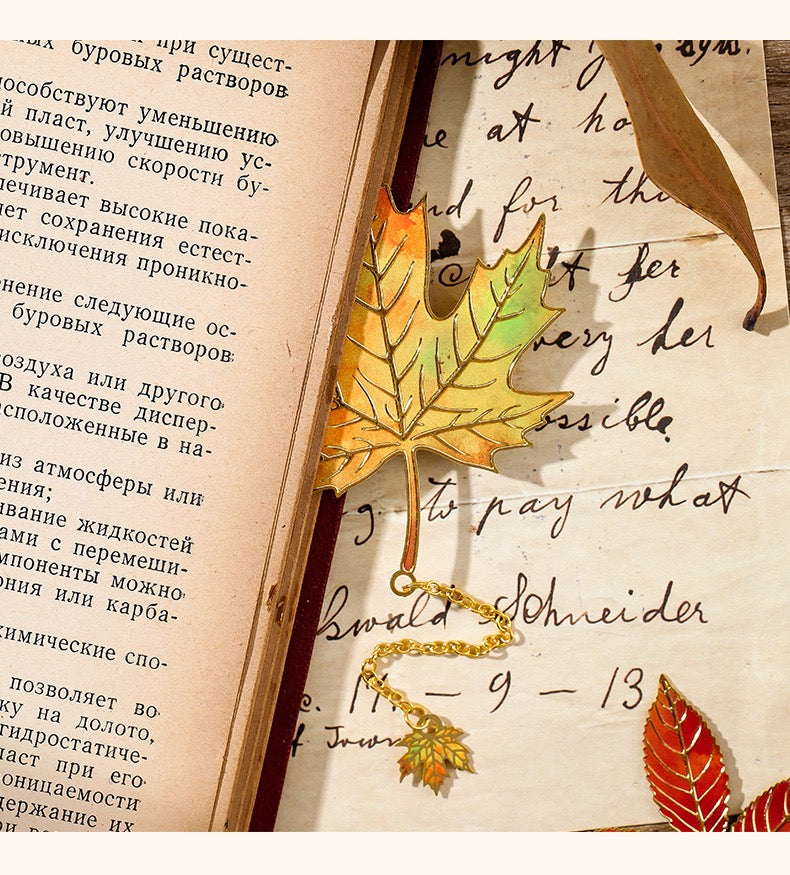 при сущест-
буровых растворов
пособствуют уменьшению
й пласт, улучшению ус-
овышению скорости бу-
трумент.
печивает высокие пока-
чет сохранения естест-
исключения проникно-
нение следующие ос-
буровых растворов
воздуха или другого
В качестве диспер-
асположенные в на-
из атмосферы или
ения;
ивание жидкостей
ами с перемеши-
мпоненты можно
ония или карба-
химические спо-
позволяет во
ку на долото,
гидростатиче-
ласт при его
оницаемости
держание их
night
at
for
her
very her
ossible.
to pay what
Oswald Schneider
11 - 9 - 13